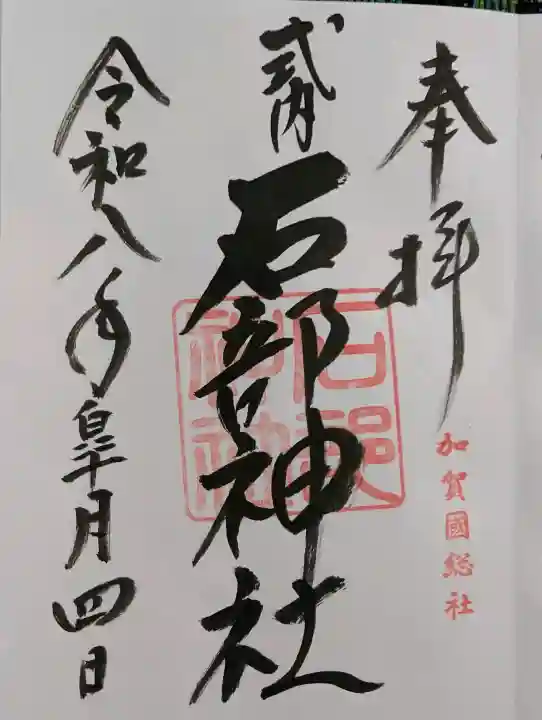 奉拝
加賀國総社
式内
石部神社
石部神社
令和八年皐月四日